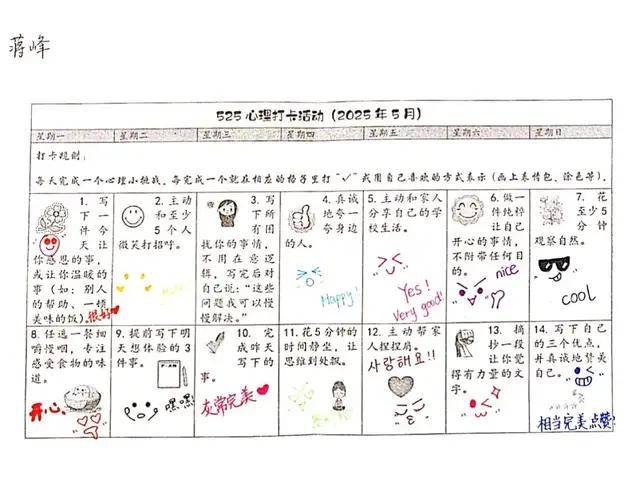 蒋峰
525 心理打卡活动（2025 年 5 月）
星期一 星期二 星期三 星期四 星期五 星期六 星期日
打卡规则：
每天完成一个心理小挑战。每完成一个就在相应的格子里打“√”或用自己喜欢的方式表示（画上表情包、涂色等）。
1. 写
下一
件今
天让
你感恩的事，
或让你温暖的
事（如：别人
的帮助、一顿
美味的饭）
很好
2. 主动
和至少
5 个人
微笑打招呼。
3. 写
下所
有困
扰你的事情，
不用在意逻
辑，写完后对
自己说：“这些
问题我可以慢
慢解决。”
4. 真诚
地夸一
夸身边
的人。
Happy!
5. 主动和家人
分享自己的学
校生活。
Yes!
Very good!
6. 做一
件纯粹
让自己
开心的事情，
不附带任何目
的。
nice
7. 花
至少 5
分钟
观察自然。
COOL
8. 任选一餐细
嚼慢咽，专注
感受食物的味
道。
开心
9. 提前写下明
天想体验的 3
件事。
嘿嘿
10. 完
成昨天
写下的
事。
灰常完美
11. 花 5 分钟的
时间静坐，让
思维到处飘。
12. 主动帮家
人捏捏肩。
사랑해요!!
13. 摘
抄一段
让你觉
得有力量的文
字。
14. 写下自己
的三个优点，
并真诚地赞美
自己。
相当完美点赞